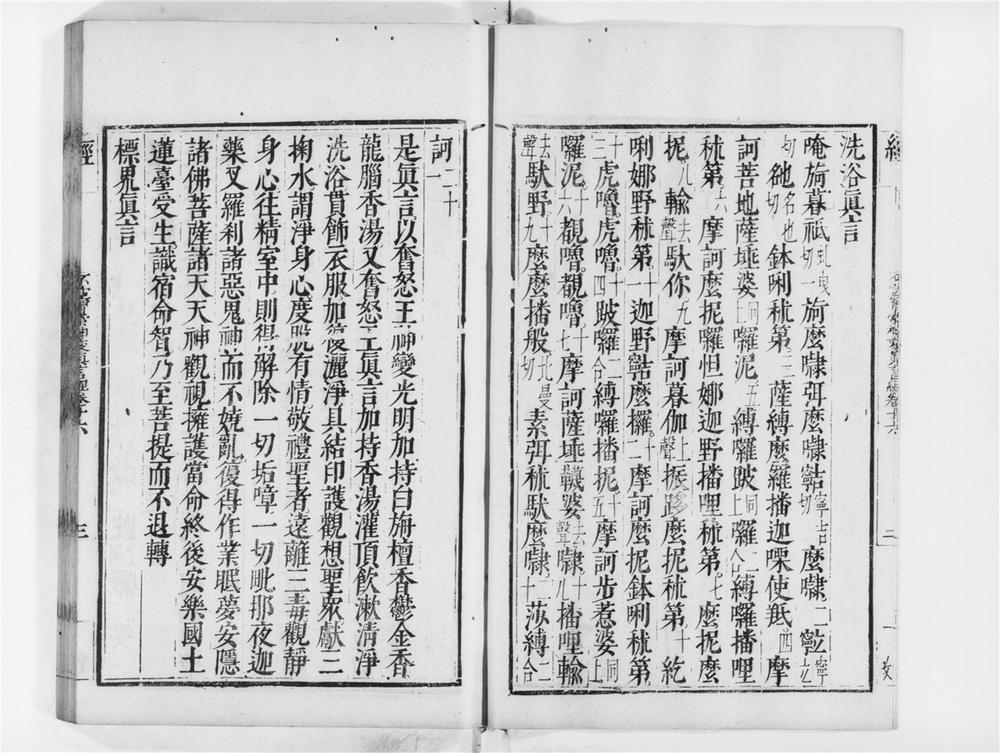 洗浴眞言
唵旖暮祇虬曳切一旖麼㘑弭麼㘑𪘨寧吉切麼㘑二𪘨寧立
切虵名也切鉢唎秫第三薩縛麼羅播迦㗚使羝四摩
訶菩地薩埵婆同上囉泥五縛囉跛同上囉二合縛囉播哩
秫第六摩訶麼抳囉怛娜迦野播哩秫第七麼抳麼
抳八輸去聲馱你九摩訶暮伽上聲振跢麼抳秫第十紇
唎娜野秫第十一迦野𪘨麼攞十二摩訶麼抳鉢唎秫第
十三虎嚕虎嚕十四跛囉二合縛囉播抳十五摩訶步惹婆同上
囉泥十六覩嚕覩嚕十七摩訶薩埵韈婆去聲㘑十八播哩輸
去聲馱野十九麼麼播般北曼切素弭秫馱麼㘑二十莎縛二合
訶二十一
是眞言以奮怒王神變光明加持白旃檀香鬱金香
龍腦香湯又奮怒王眞言加持香湯灌頂飲漱清淨
洗浴貫飾衣服加復灑淨具結印護觀想聖衆獻三
掬水謂淨身心度脫有情敬禮聖者遠離三毒觀靜
身心往精室中則得解除一切垢障一切毗那夜迦
藥叉羅刹諸惡鬼神而不嬈亂復得作業眠夢安隱
諸佛菩薩諸天天神觀視擁護當命終後安樂國土
蓮臺受生識宿命智乃至菩提而不退轉
標界眞言
經
二
三